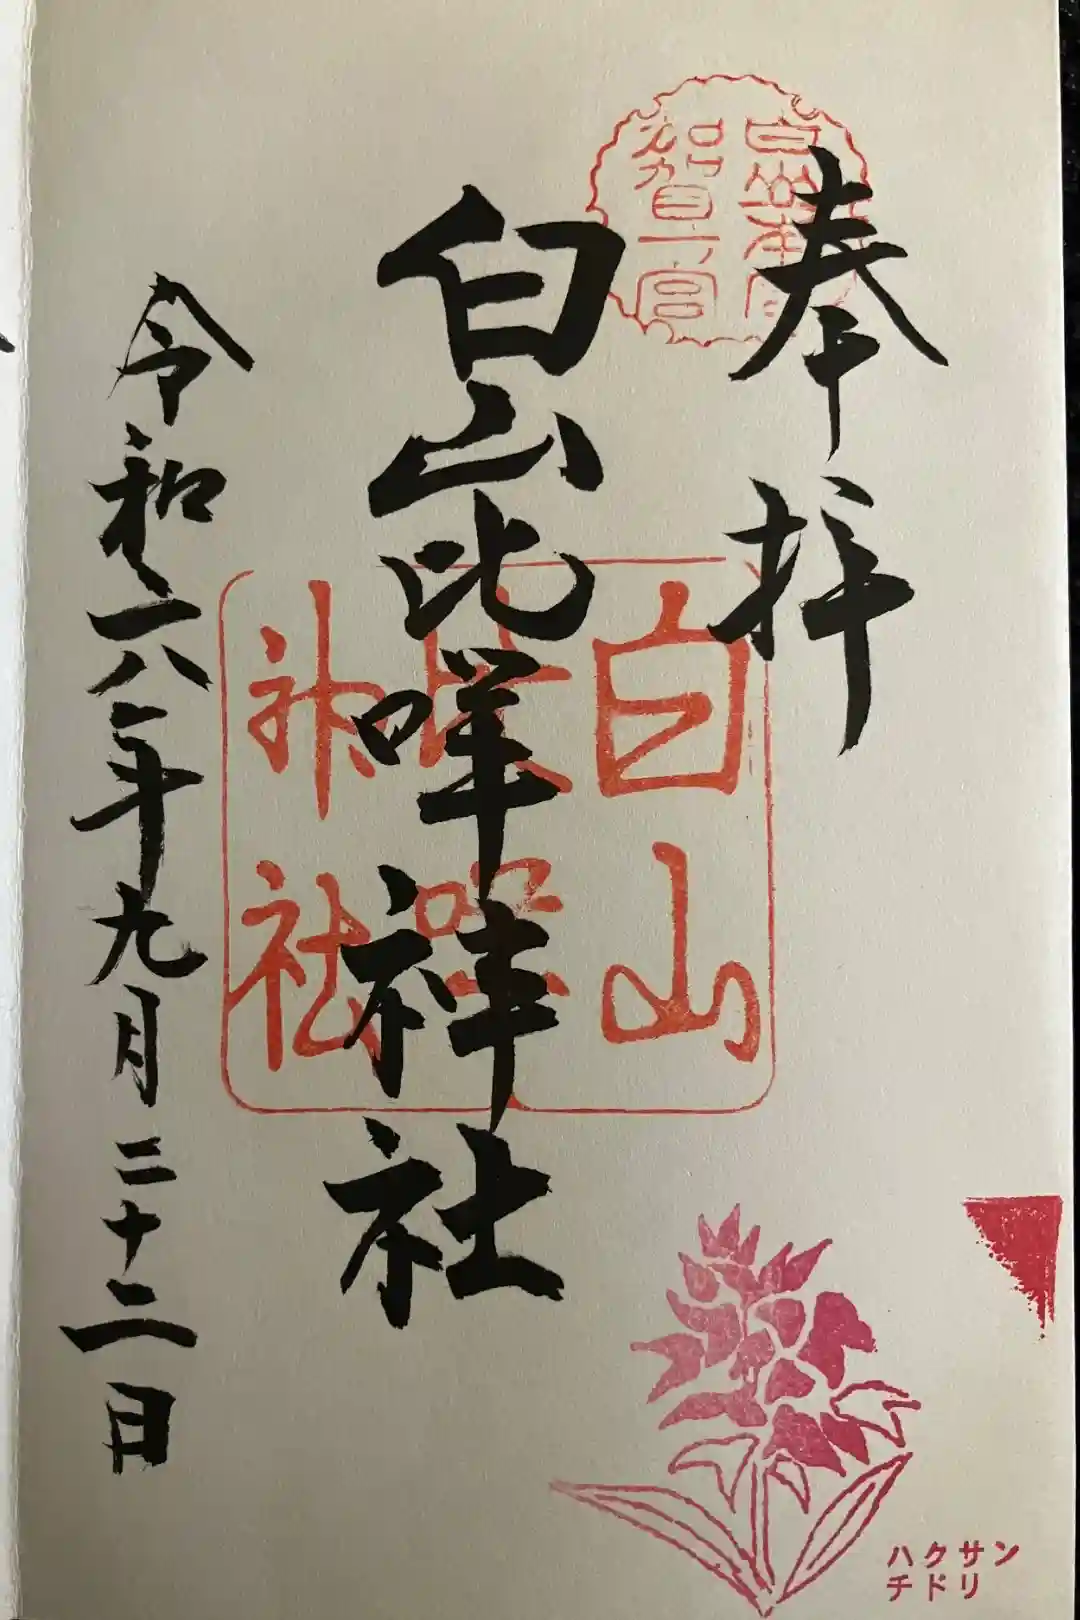 奉拝
白山本宮
加賀一宮
白山比咩神社
白山
比咩
神社
令和六年九月二十二日
ハクサン
チドリ